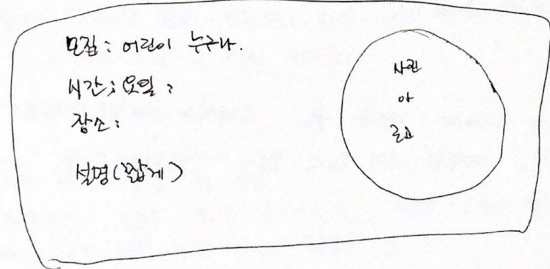 모집: 어린이 누구나.
시간; 요일:
장소:
설명(짧게)
사진
아
로고